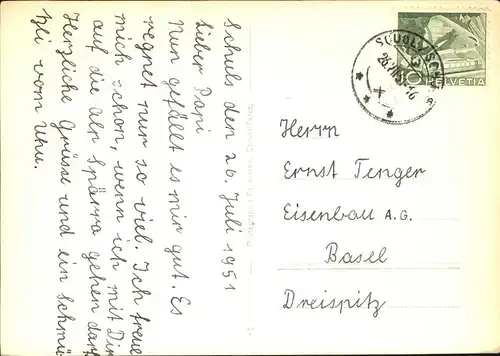 Schuls den 26. Juli 1951
Lieber Papi
Nun gefällt es mir gut. Es
regnet nur so viel. Ich freue
mich schon, wenn ich mit Dir
auf die Alp Spärra gehen darf
Herzliche Grüsse und ein Schmü
tzli vom Uhu.
HELVETIA
Herrn
Ernst Tenger
Eisenbau A.G.
Basel
Dreispitz